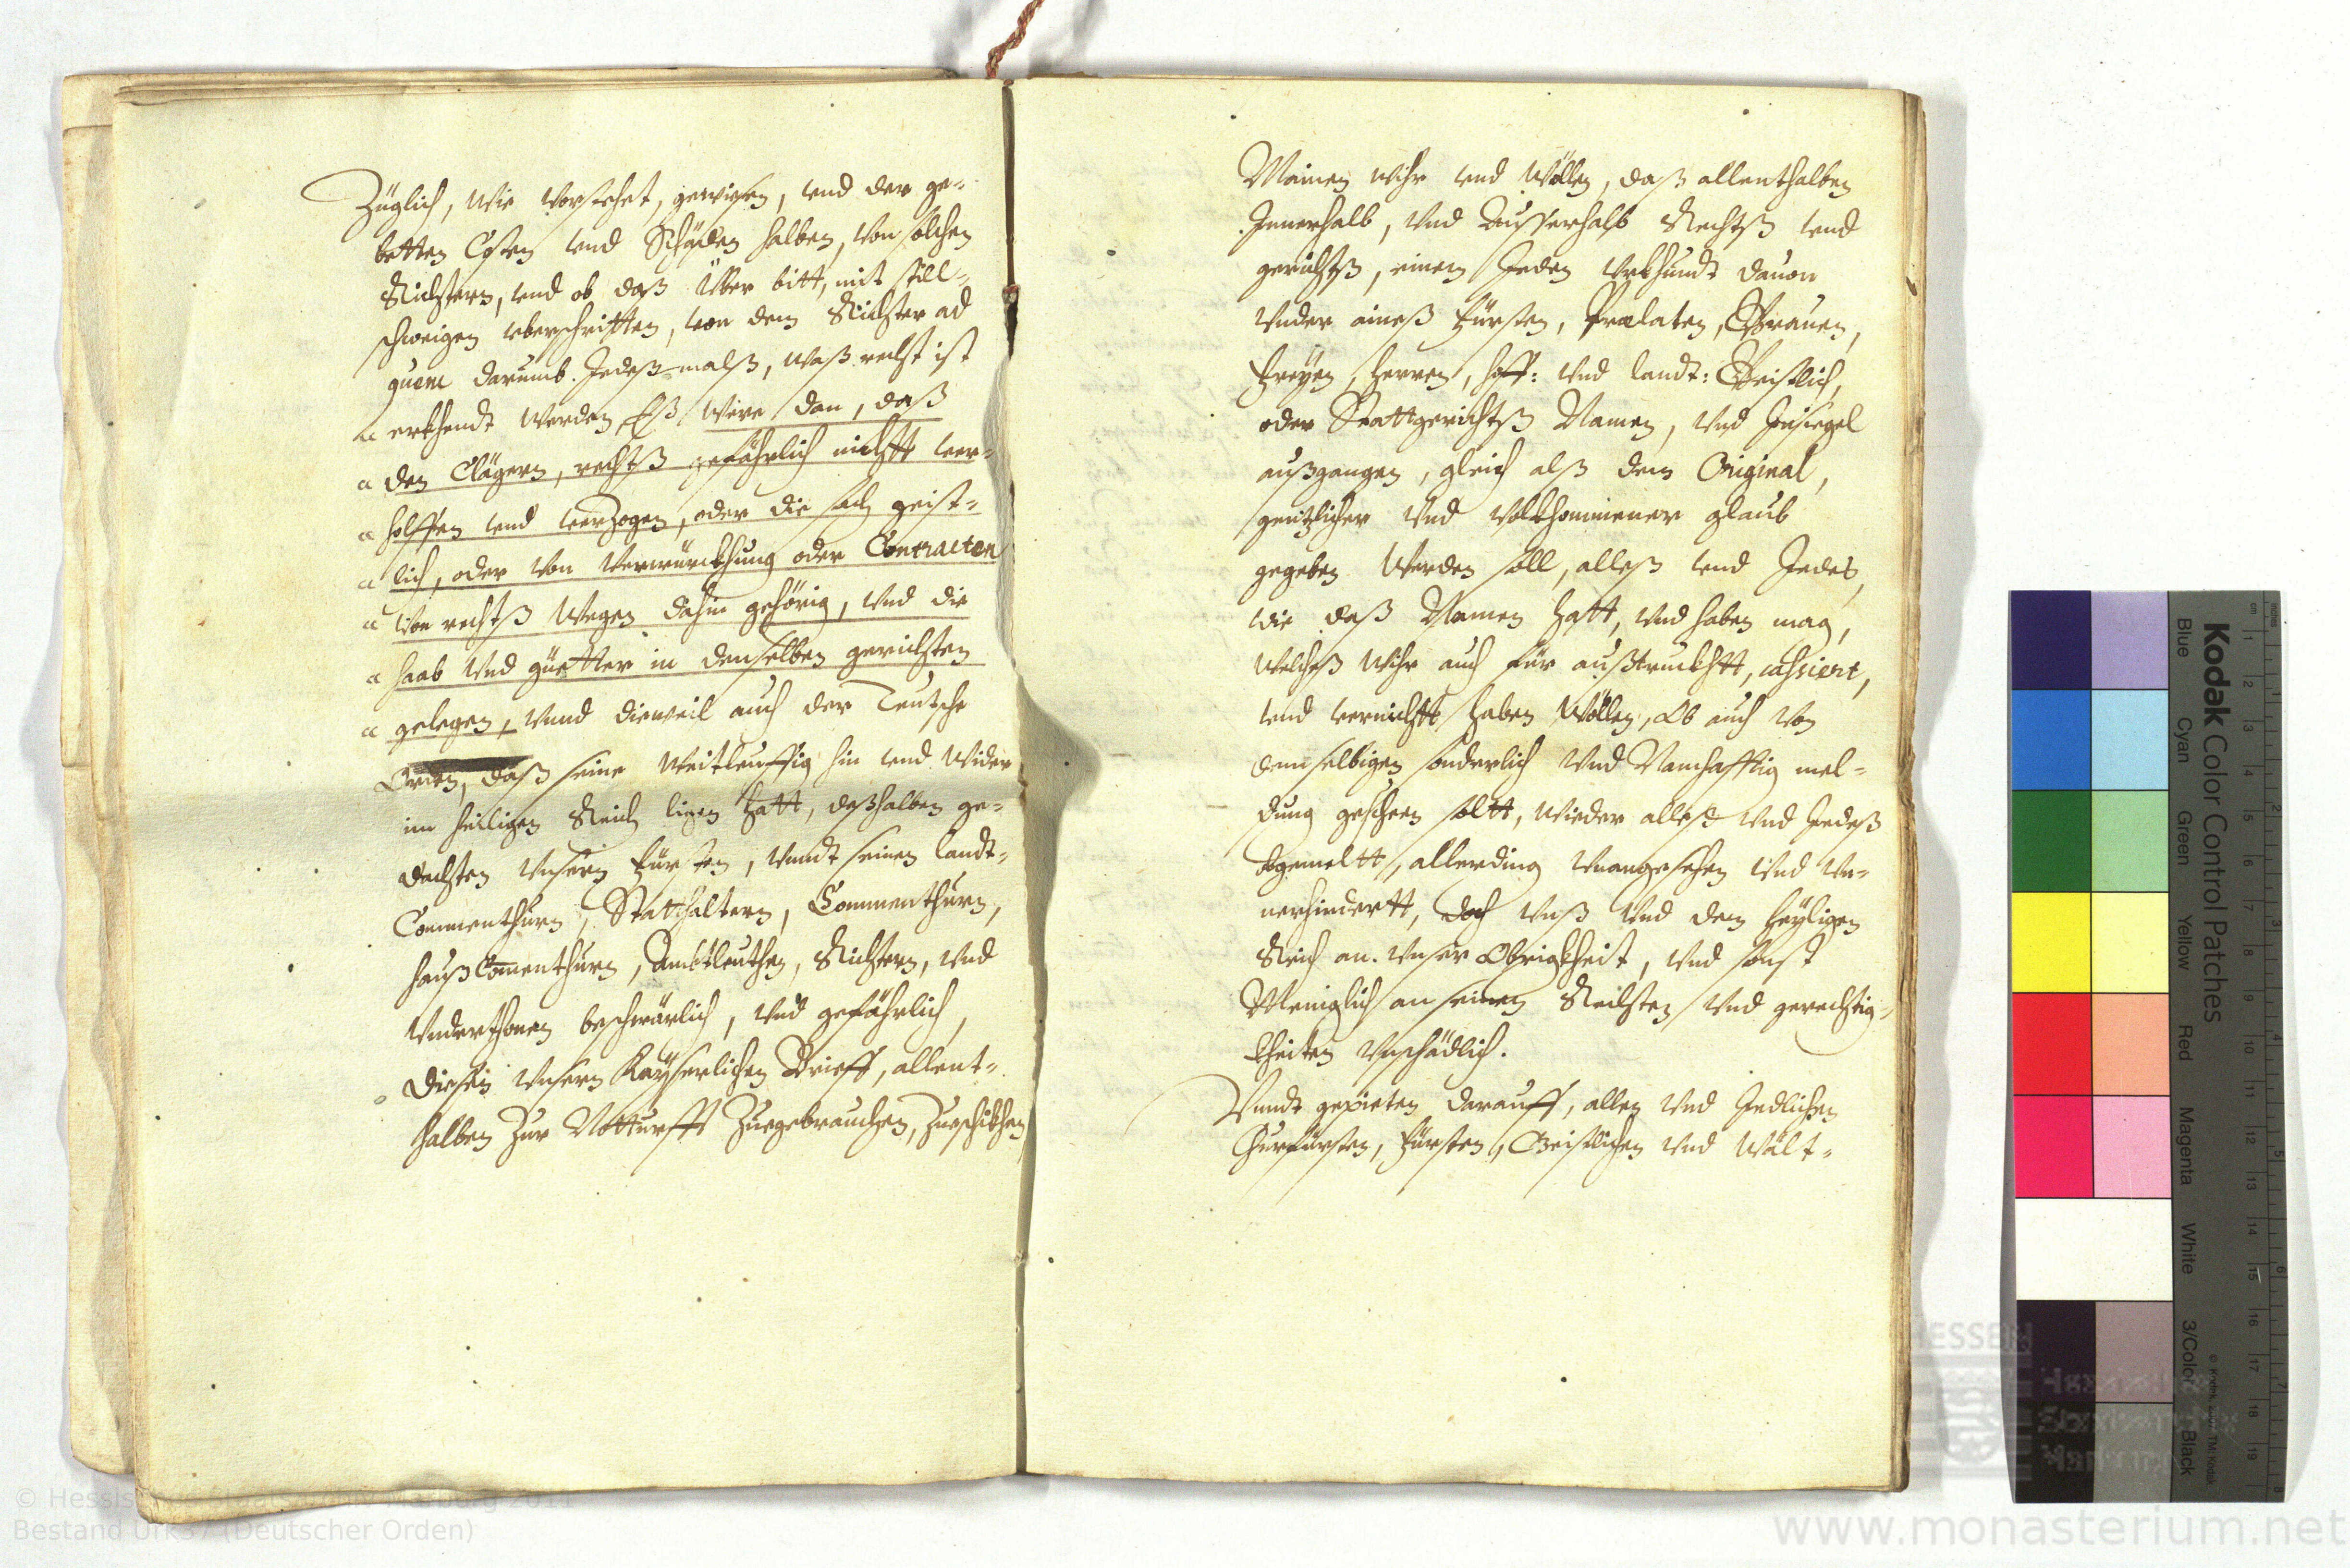 Züglich, wie vorstehet, gewisen, vnd der ge-
betten Costen vnd Schäden halben, von solchen
Richtern, vnd ob daß Vber bitt, mit still-
schweigen vberschritten, von dem Richter ad
quem darumb. Jedeß malß, waß recht ist
a erkhendt werden, Eß were dan, daß
a den Clägern, rechtß gefährlich nichtt ver-
a holffen vnd verzogen, oder die sach geist-
a lich, oder von Verwürckhung oder Contracten
a von rechtß wegen dahin gehörig, vnd die
a haab vnd güetter in denselben gerichten
a gelegen, vnnd dieweil auch der Teutsche
Orden, daß seine weitleuffig hin vnd wider
im heiligen Reich ligen hatt, deßhalben ge-
dachten vnsern Fürsten, vnndt seinen landt-
Commenthurn, Statthaltern, Commenthurn,
hauß Comenthurn, Ambtleuthen, Richtern, vnd
vnderthonen beschwärlich, vnd gefährlich,
diesen vnsern Kayserlichen Brieff, allent-
halben zur Notturfft zuegebrauchen, zueschikhen
Mainen wihr vnd wöllen, daß allenthalben
Innerhalb, vnd Ausserhalb Rechtß vnd
gerichtß, einem Jeden vrkhundt dauon
vnder aineß Fürsten, Prælaten, Grauen,
Freyen, Herren, hoff: vnd landt: Geistlich,
oder Stattgerichtß Namen, vnd Insiegel
außgangen, gleich alß dem Original,
gentzlicher vnd volkhommener glaub
gegeben werden soll, alleß vnd Jedes,
wie daß Namen hatt, vnd haben mag,
welcheß wihr auch für außtruckhtt, cassiert,
vnd vernichtt haben wöllen, Ob auch von
demselbigen sonderlich vnd Namhafftig mel-
dung gescheen soltt, wieder alleß vnd Jedeß
obgemeltt, allerding vnangesehen vnd vn-
uerhindertt, doch vnß vnd dem heyligen
Reich an vnser Obrigkheit, vnd sonst
Meniglich an seinen Rechten vnd gerechtig-
kheiten vnschädlich.
Vnndt gepieten darauff, allen vnd Jedlichen
Churfürsten, Fürsten, Geistlichen vnd wält-
Kodak Color Control Patches
Blue Cyan Green Yellow Red Magenta White 3/Color Black
© Hessisches Staatsarchiv Marburg 2011
Bestand Urk37 (Deutscher Orden)
HESSEN
www.monasterium.net